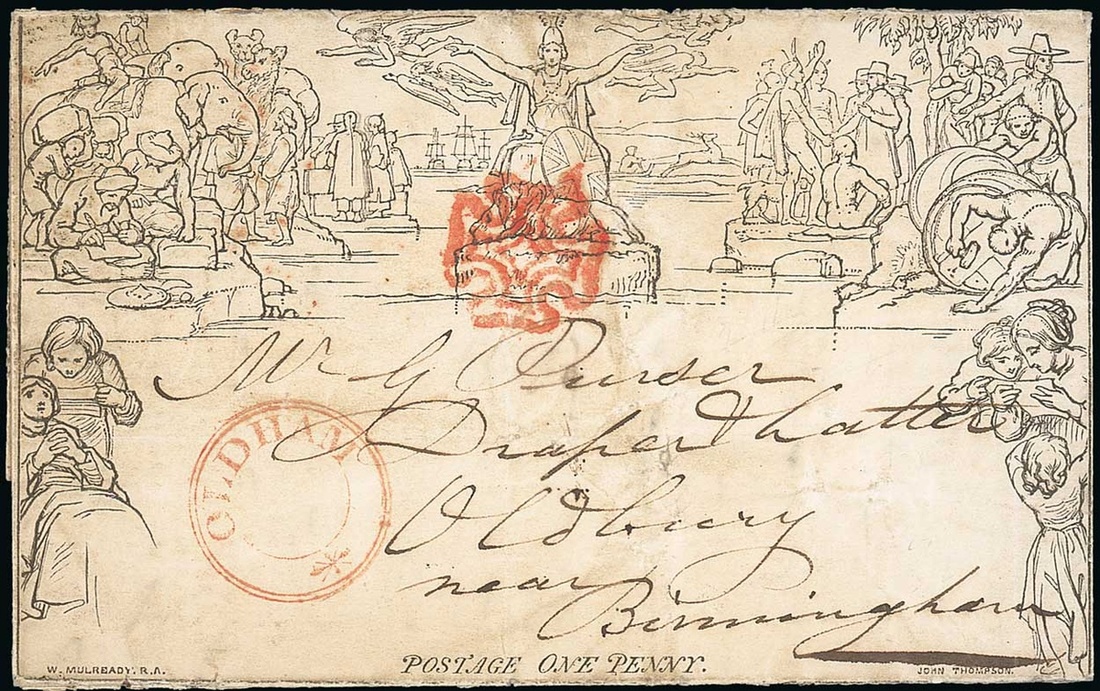 Mr G Purser
Draper & hatter
Oldbury
near
Birmingham
OLDHAM
POSTAGE ONE PENNY.
W. MULREADY, R.A.
JOHN THOMPSON.